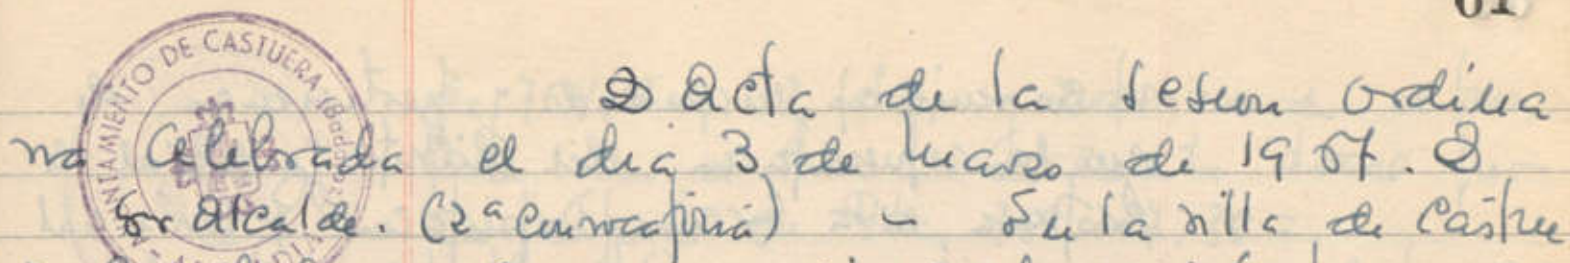 61
AYUNTAMIENTO DE CASTUERA (Bad
Acta de la sesion ordina
ria celebrada el dia 3 de Marzo de 1957.
Sr Alcalde. (2ª convocatoria) - En la villa de Castue